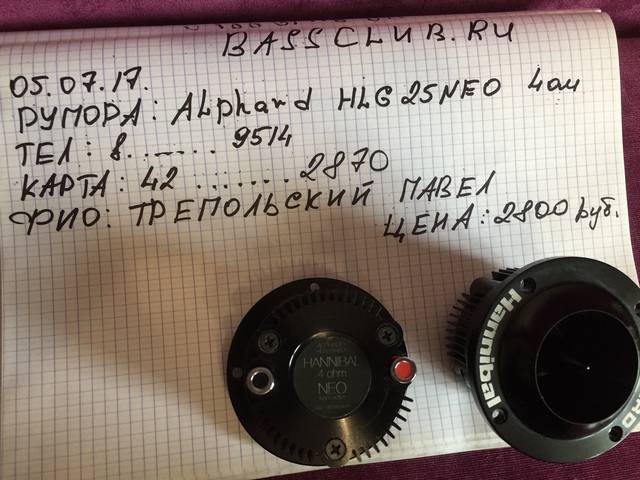 BASSCLUB.RU
05.07.17.
РУПОРА: ALphard HLG25NEO 4ом
ТЕЛ: 8....... 9514
КАРТА: 42 ....... 2870
ФИО: ТРЕПОЛЬСКИЙ ПАВЕЛ
ЦЕНА: 2800 руб.
HANNIBAL
4 ohm
NEO
Hannibal